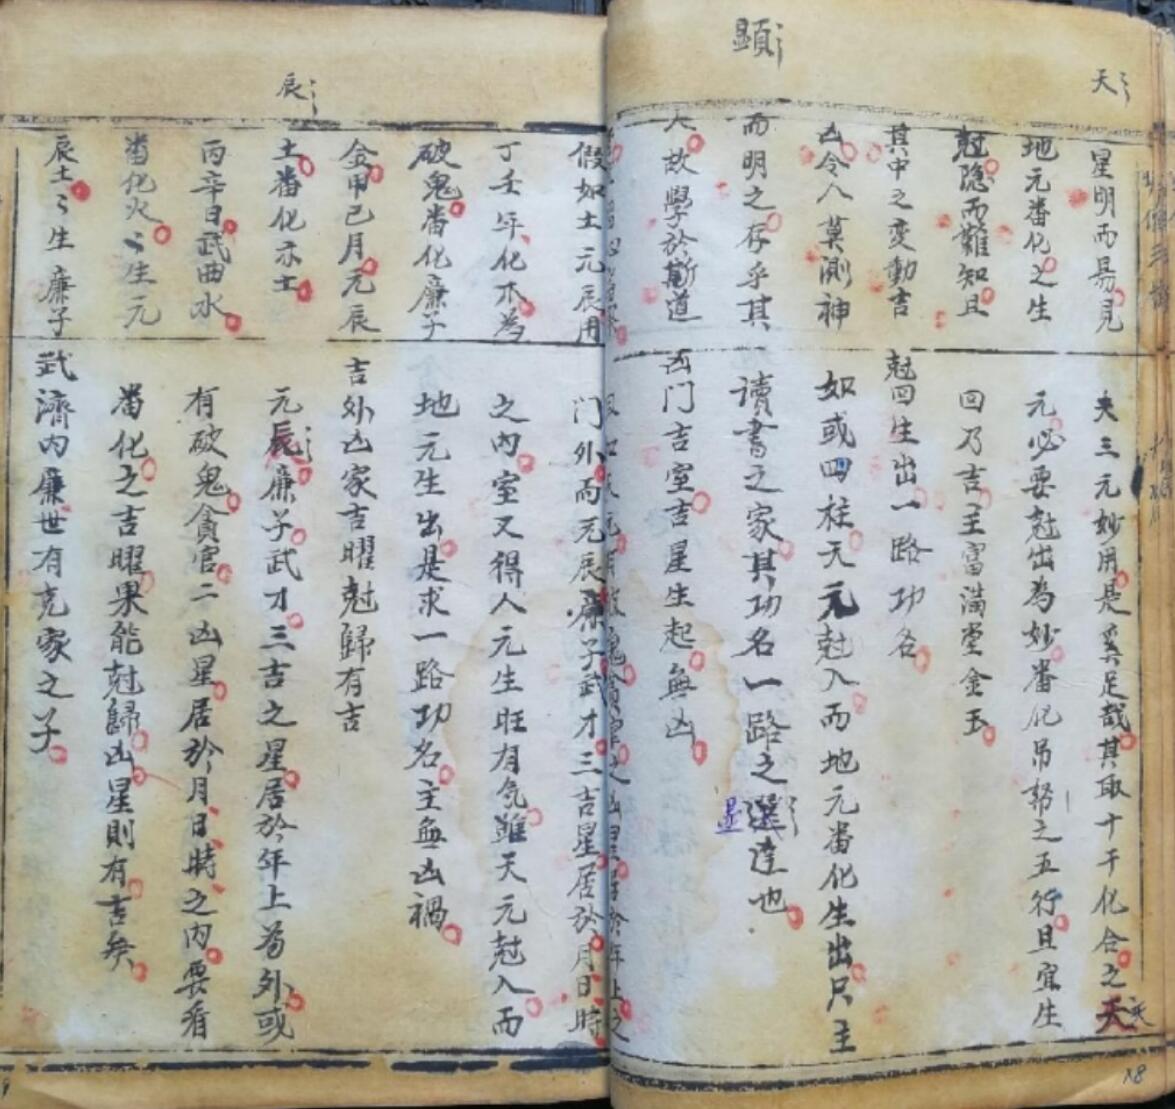 天
顯
星明而易見
地元畨化之生
尅隐而難知且
其中之变動吉
凶令人莫測神
而明之存乎其
人故學於斯道
夫三元妙用是奚足哉其取十干化合之天
元必要尅出為妙畨化吊替之五行且宜生
回乃吉主富滿堂金玉
尅回生出一路功名
如或四柱天元尅入而地元畨化生出只主
讀書之家其功名一路之選達也
显
凶门吉室吉星生起無凶
辰
假如土元辰用
丁壬年化木為
破鬼畨化廉子
金甲己月元辰
土畨化亦土
丙辛日武曲水
畨化火々生元
辰土々生廉子
门外而元辰廉子武才三吉星居於月日時
之内室又得人元生旺有氣雖天元尅入而
地元生出是求一路功名主無凶禍
吉外凶家吉曜尅歸有吉
元辰廉子武才三吉之星居於年上為外或
有破鬼貪官二凶星居於月日時之内要看
畨化之吉曜果能尅歸凶星則有吉矣
武濟内廉世有克家之子
18